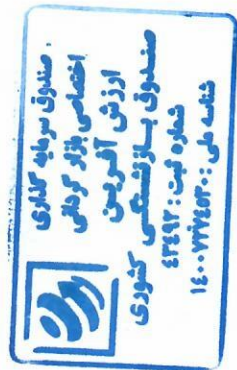 صندوق سرمایه گذاری
اختصاصی بازار گردانی
ارزش آفرین
صندوق بازنشستگی کشوری
شماره ثبت: ۴۳۴۹۲
شناسه ملی: ۱۴۰۰۷۲۲۷۴۵۳۰